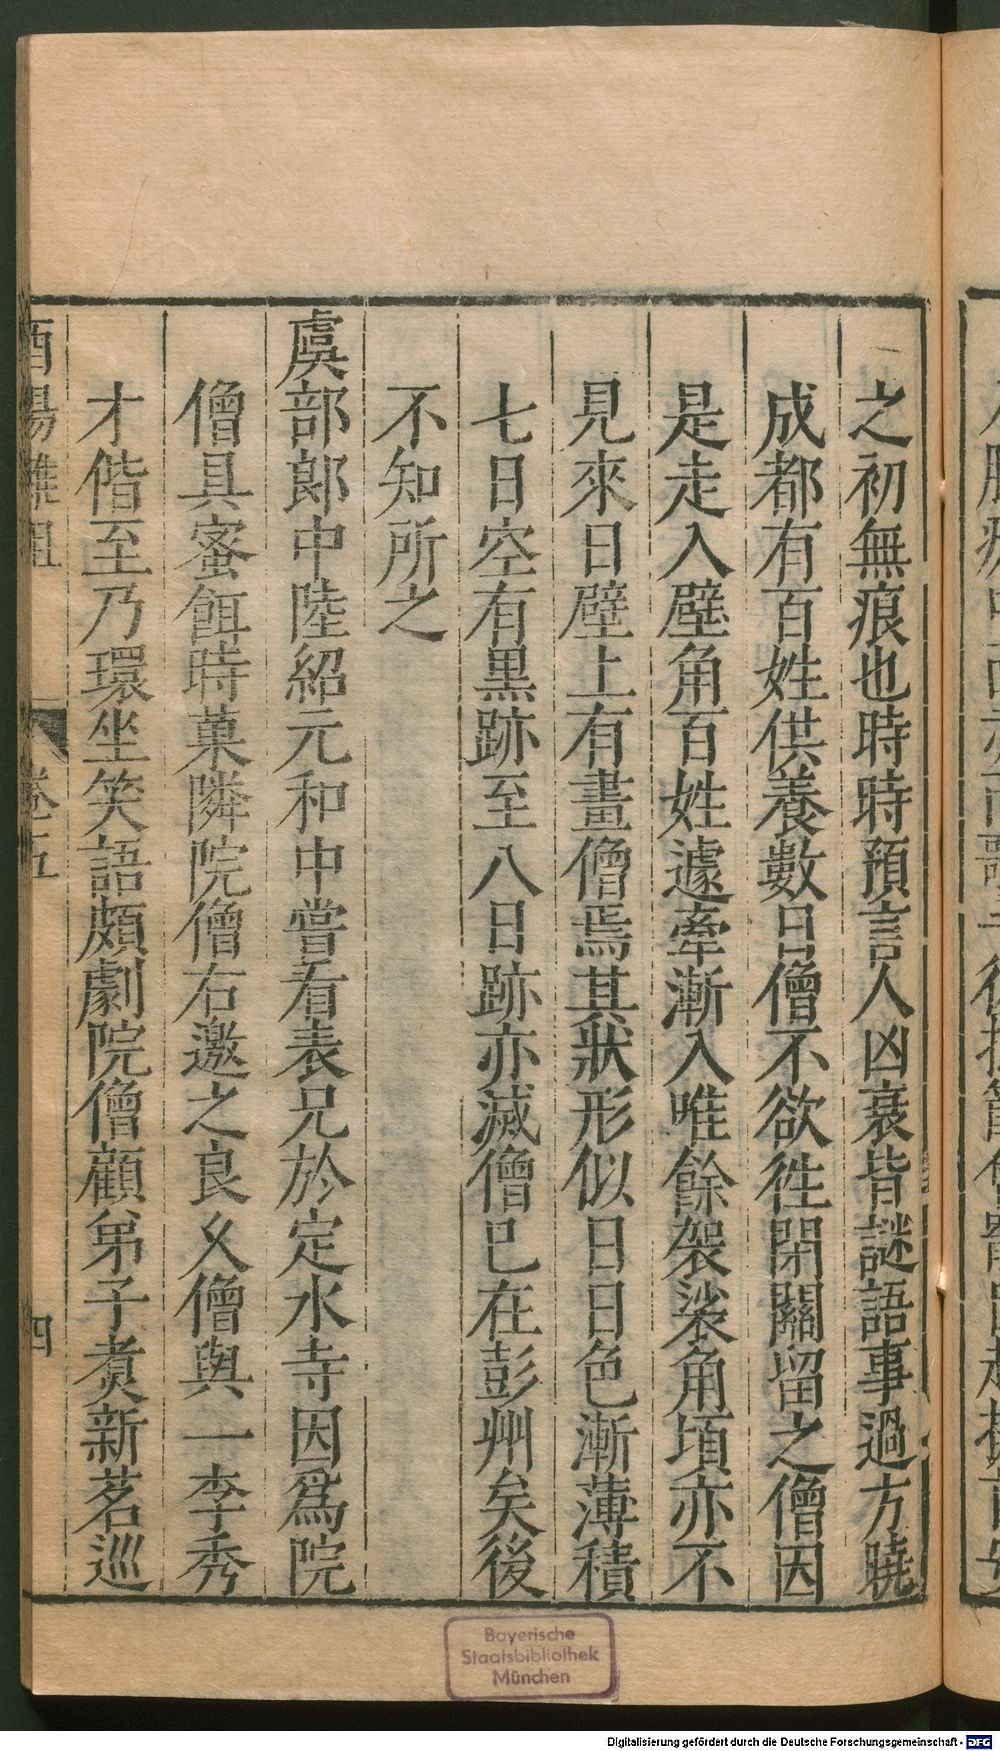 之初無痕也時時預言人凶衰皆謎語事過方曉
成都有百姓供養數日僧不欲徃閉關留之僧因
是走入壁角百姓遽牽漸入唯餘袈裟角頃亦不
見來日壁上有畫僧焉其狀形似日日色漸薄積
七日空有黒跡至八日跡亦滅僧已在彭州矣後
不知所之
虞部郎中陸紹元和中嘗看表兄於定水寺因爲院
僧具蜜餌時菓隣院僧右邀之良乆僧與一李秀
才偕至乃環坐笑語頗劇院僧顧弟子煑新茗巡
酉陽雜俎 卷五 四
Bayerische
Staatsbibliothek
München
Digitalisierung gefördert durch die Deutsche Forschungsgemeinschaft - DFG